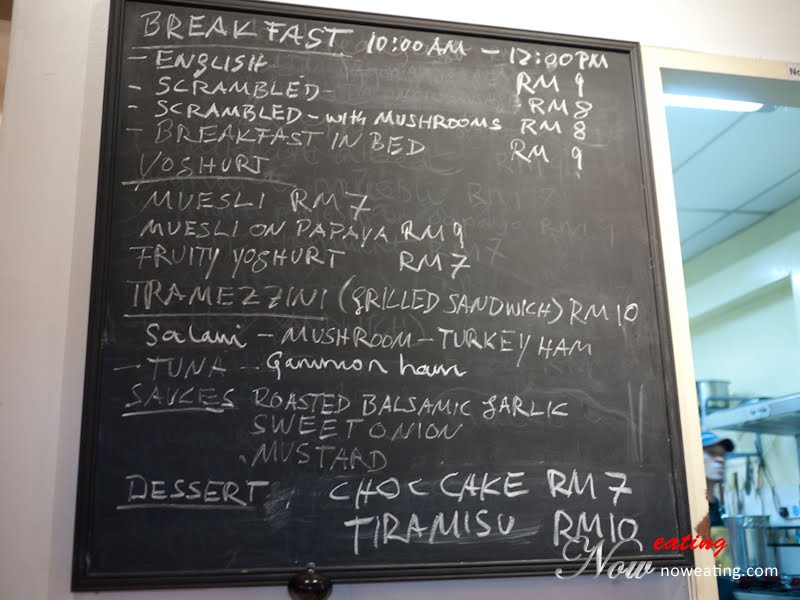 BREAKFAST 10:00AM - 12:00PM
- ENGLISH RM 9
- SCRAMBLED- RM 8
- SCRAMBLED - with MUSHROOMS RM 8
- BREAKFAST IN BED RM 9
YOSHURT
MUESLI RM 7
MUESLI ON PAPAYA RM 9
FRUITY YOGHURT RM 7
TRAMEZZINI (GRILLED SANDWICH) RM 10
Salami - MUSHROOM - TURKEY HAM
- TUNA - Gammon ham
SAUCES ROASTED BALSAMIC GARLIC
SWEET ONION
MUSTARD
DESSERT CHOC CAKE RM 7
TIRAMISU RM10
Now eating
noweating.com